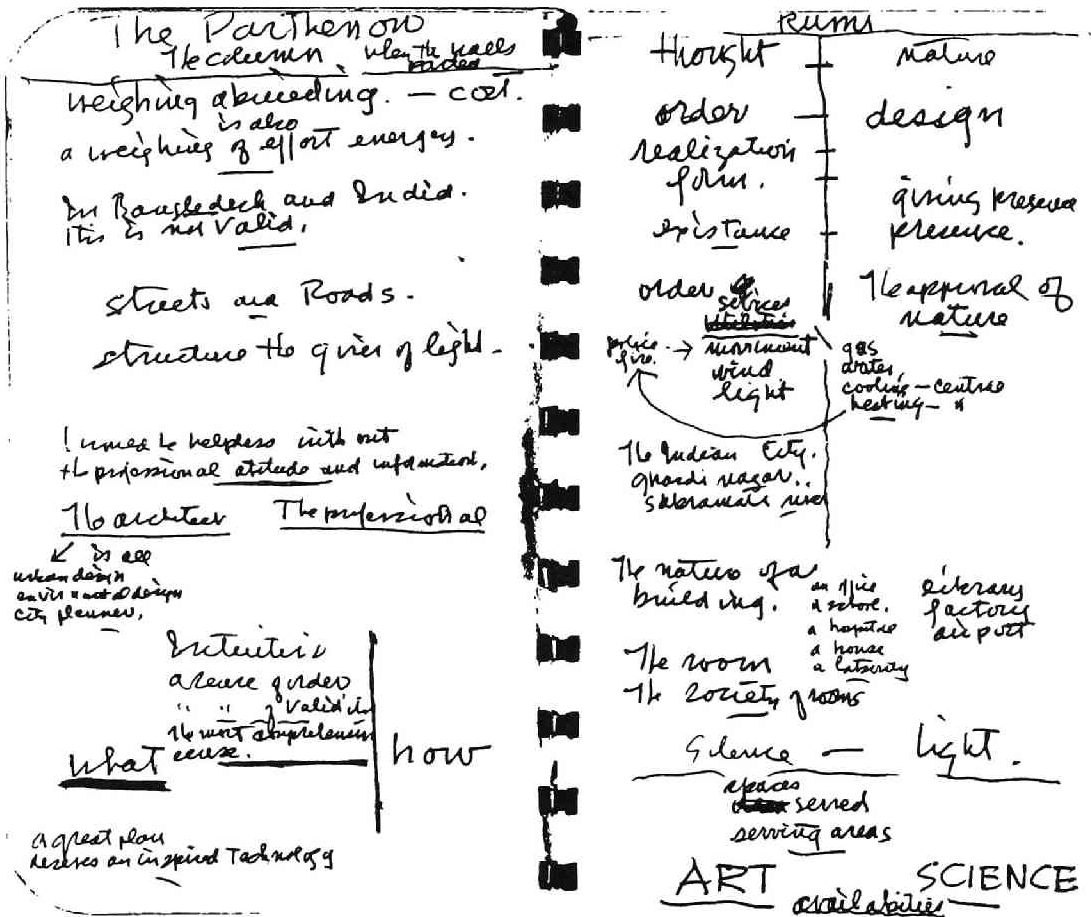 The Parthenon
The column when the walls
parted
weighing a building. — cost.
is also
a weighing of effort energy.
In Bangledesh and India.
this is not Valid.
streets and Roads.
structure the giver of light.
I would be helpless without
the professional attitude and information.
The architect The professional
is all
urban design
city planner.
Intuition
a sense of order
" " of validity
the most comprehensive
sense.
what
how
a great plan
deserves an inspired Technology
Ruins
thought nature
order — design
realization
form.
giving presence
existance presence.
order of The approval of
services nature
police → movement
fire. wind
light
gas
water,
cooling — centre
heating — "
The Indian City.
ghandi nagar..
sabramati river
The nature of a
building.
an office
a school.
a hospital
a house
a laboratory
library
factory
airport
The room
The society of rooms
Silence — Light.
spaces
served
serving areas
ART SCIENCE
availabilities